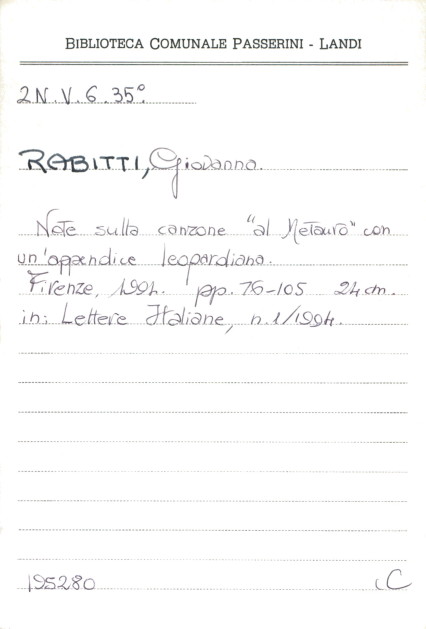 BIBLIOTECA COMUNALE PASSERINI - LANDI
2N.V.6.35°
RABITTI, Giovanna.
Note sulla canzone "al Metauro" con
un'appendice leopardiana.
Firenze, 1994. pp. 76-105 24 cm.
in: Lettere Italiane, n.1/1994.
195280 C